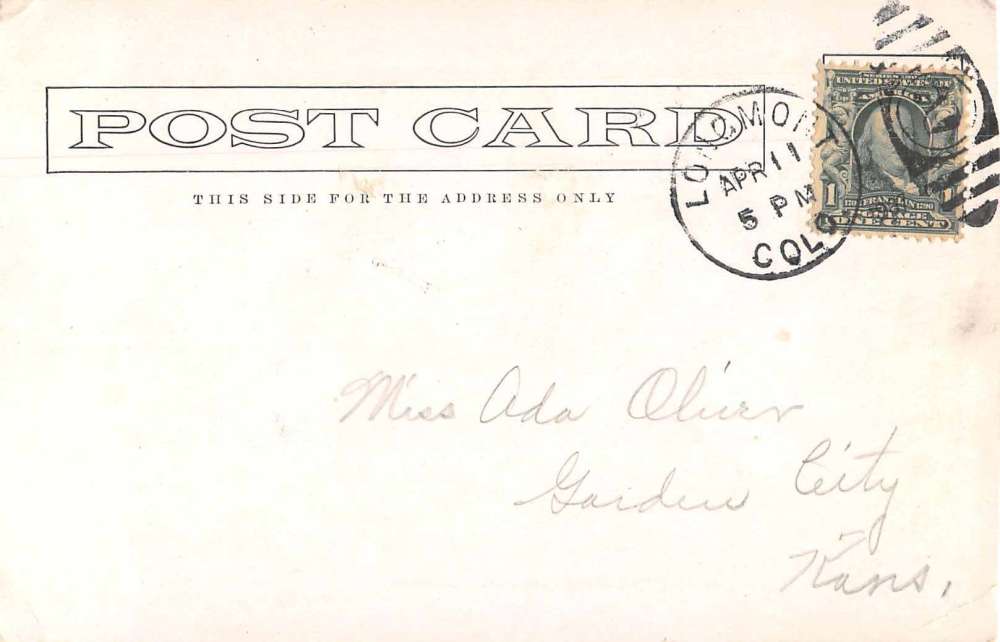 POST CARD
THIS SIDE FOR THE ADDRESS ONLY
LONGMONT
APR 11
5 PM
COLO
SERIES 1902
UNITED STATES OF
AMERICA
1
FRANKLIN 1790
POSTAGE
ONE CENT
Miss Ada Oliver
Garden City
Kans.